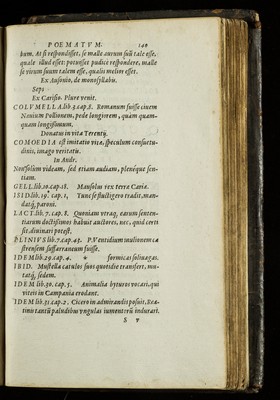 POEMATVM. 249
bum. At si respondisset, se malle aurum suũ tale esse,
quale illud esset: potuisset pudicè respondere, malle
se virum suum talem esse, qualis melior esset.
Ex Ausonio, de monosyllabis.
Seps
Ex Carisio. Plure venit.
COLVMELLA lib. 3. cap. 8. Romanum fuisse ciuem
Næuium Pollionem, pede longiorem, quàm quam-
quam longissimum.
Donatus in vita Terentij.
COMOEDIA est imitatio vitæ, speculum consuetu-
dinis, imago veritatis.
In Andr.
Non solùm videam, sed etiam audiam, plenéque sen-
tiam.
GELL. lib. 10. cap. 18. Mausolus rex terræ Cariæ.
ISID. lib. 19. cap. 1. Tunc se fluctigeræ tradit, man-
datq́; paroni.
LACT. lib. 7. cap. 8. Quoniam vtraq, earum senten-
tiarum doctissimos habuit auctores, nec, quid certi
sit, diuinari potest.
PLINIVS lib. 7. cap. 43. P. Ventidium mulionem ca
strensem suffarraneum fuisse.
IDEM lib. 29. cap. 4. * formicas soliuagas.
IBID. Mustella catulos suos quotidie transfert, mu-
tatq́; sedem.
IDEM lib. 30. cap. 5. Animalia byturos vocari, qui
viteis in Campania erodant.
IDEM lib. 31. cap. 2. Cicero in admirandis posuit, Rea-
tinis tantũ paludibus vngulas iumentorũ indurari.
S v